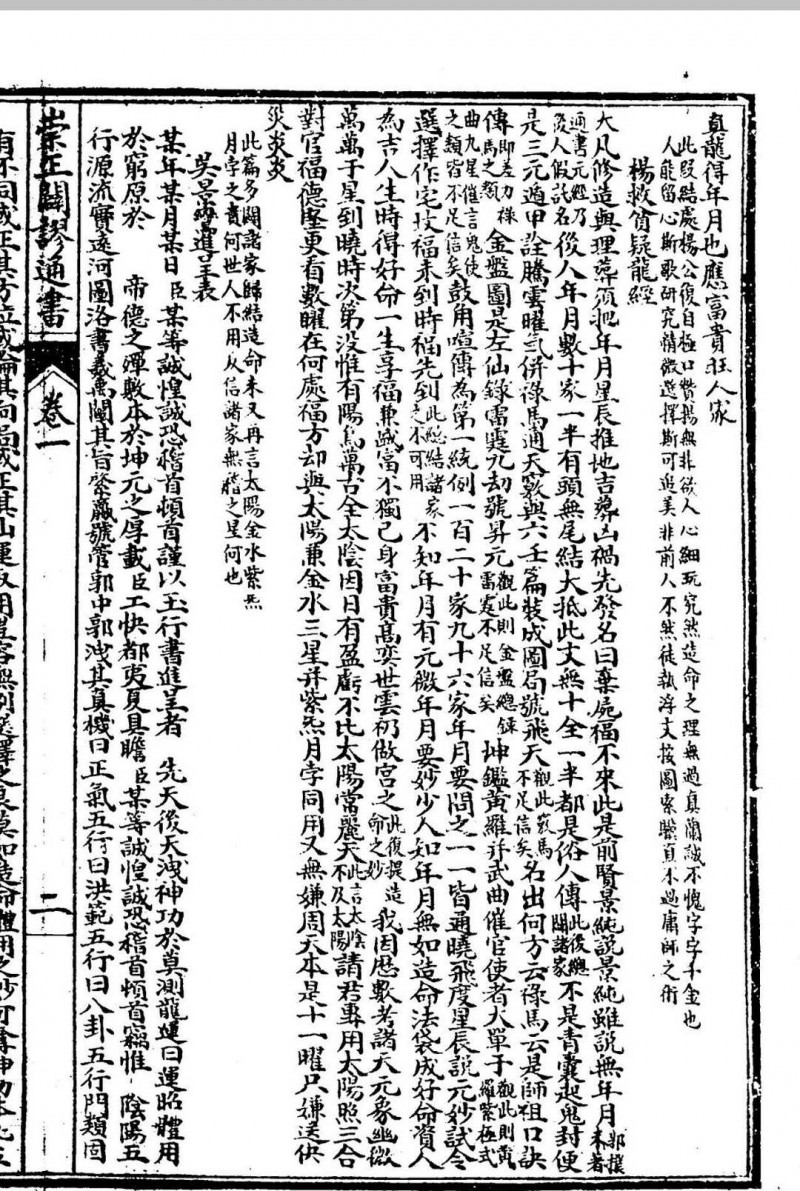 真龍得年月也應富貴旺人家
此段結處楊公復自極口贊揚無非欲人心細玩究然造命之理無過真蘭誠不愧字字千金也
人能留心斯歌研究情微選擇斯可追美非前人不然徒執浮文按圖索驥直不過庸師之術
楊救貧疑龍經
大凡修造與理葬須把年月星辰推地吉葬凶禍先發名曰棄屍福不來此是前賢景純說景純雖說無年月郭撰未著
通書元經乃後人假託名後人年月數十家一半有頭無尾結大抵此文無十全一半都是俗人傳此後總闢諸家不是青囊起鬼封便
是三元遁甲詮騰雲曜氣併祿馬通天竅與六壬篇裝成圖局號飛天觀此竅馬不足信矣名出何方云祿馬云是師祖口訣
傳即差力樣傳馬之類金盤圖是左仙錄雷霆九劫號昇元觀此則金盤總鍊雷霆不足信矣坤鑑黃羅并武曲催官使者大單于觀此則黃羅紫極武
曲九星催言鬼使之類皆不足信矣鼓用喧傳為第一統例一百二十家九十六家年月要問之一一皆通曉飛度星辰說元妙試令
選擇作宅坟福未到時禍先到此總結諸家之不可用不知年月有元微年月要妙少人知年月無如造命法袋成好命資人
為吉人生時得好命一生享福兼滅富不獨己身富貴高奕世雲礽做宮之此復提造命之妙我因歷數考諸天元象幽微
萬萬千星到曉時次第沒惟有陽烏萬古全太陰因日有盈虧不比太陽常麗天此言太陰不及太陽請君專用太陽照三合
對宮福德堅更看數曜在何處福方却與太陽兼金水三星并紫炁月孛同用又無嫌周天本是十一曜只嫌逆伏
災炎炎
此篇多闢諸家歸結造命未又再言太陽金水紫炁
月孛之貴何世人不用反信諸家無稽之星何也
吳景鸞進呈表
某年某月某日臣某等誠惶誠恐稽首頓首謹以玉行書進呈者 先天後天洩神功於莫測龍運曰運昭體用
於窮原於 帝德之渾敷本於坤元之厚載臣工快都夷夏具瞻臣某等誠惶誠恐稽首頓首竊惟 陰陽五
行源流實遠河圖洛書羲禹闡其旨紫瀛號管郭中郭洩其真機曰正氣五行曰洪範五行曰八卦五行門類固
崇正闢謬通書 卷一 二